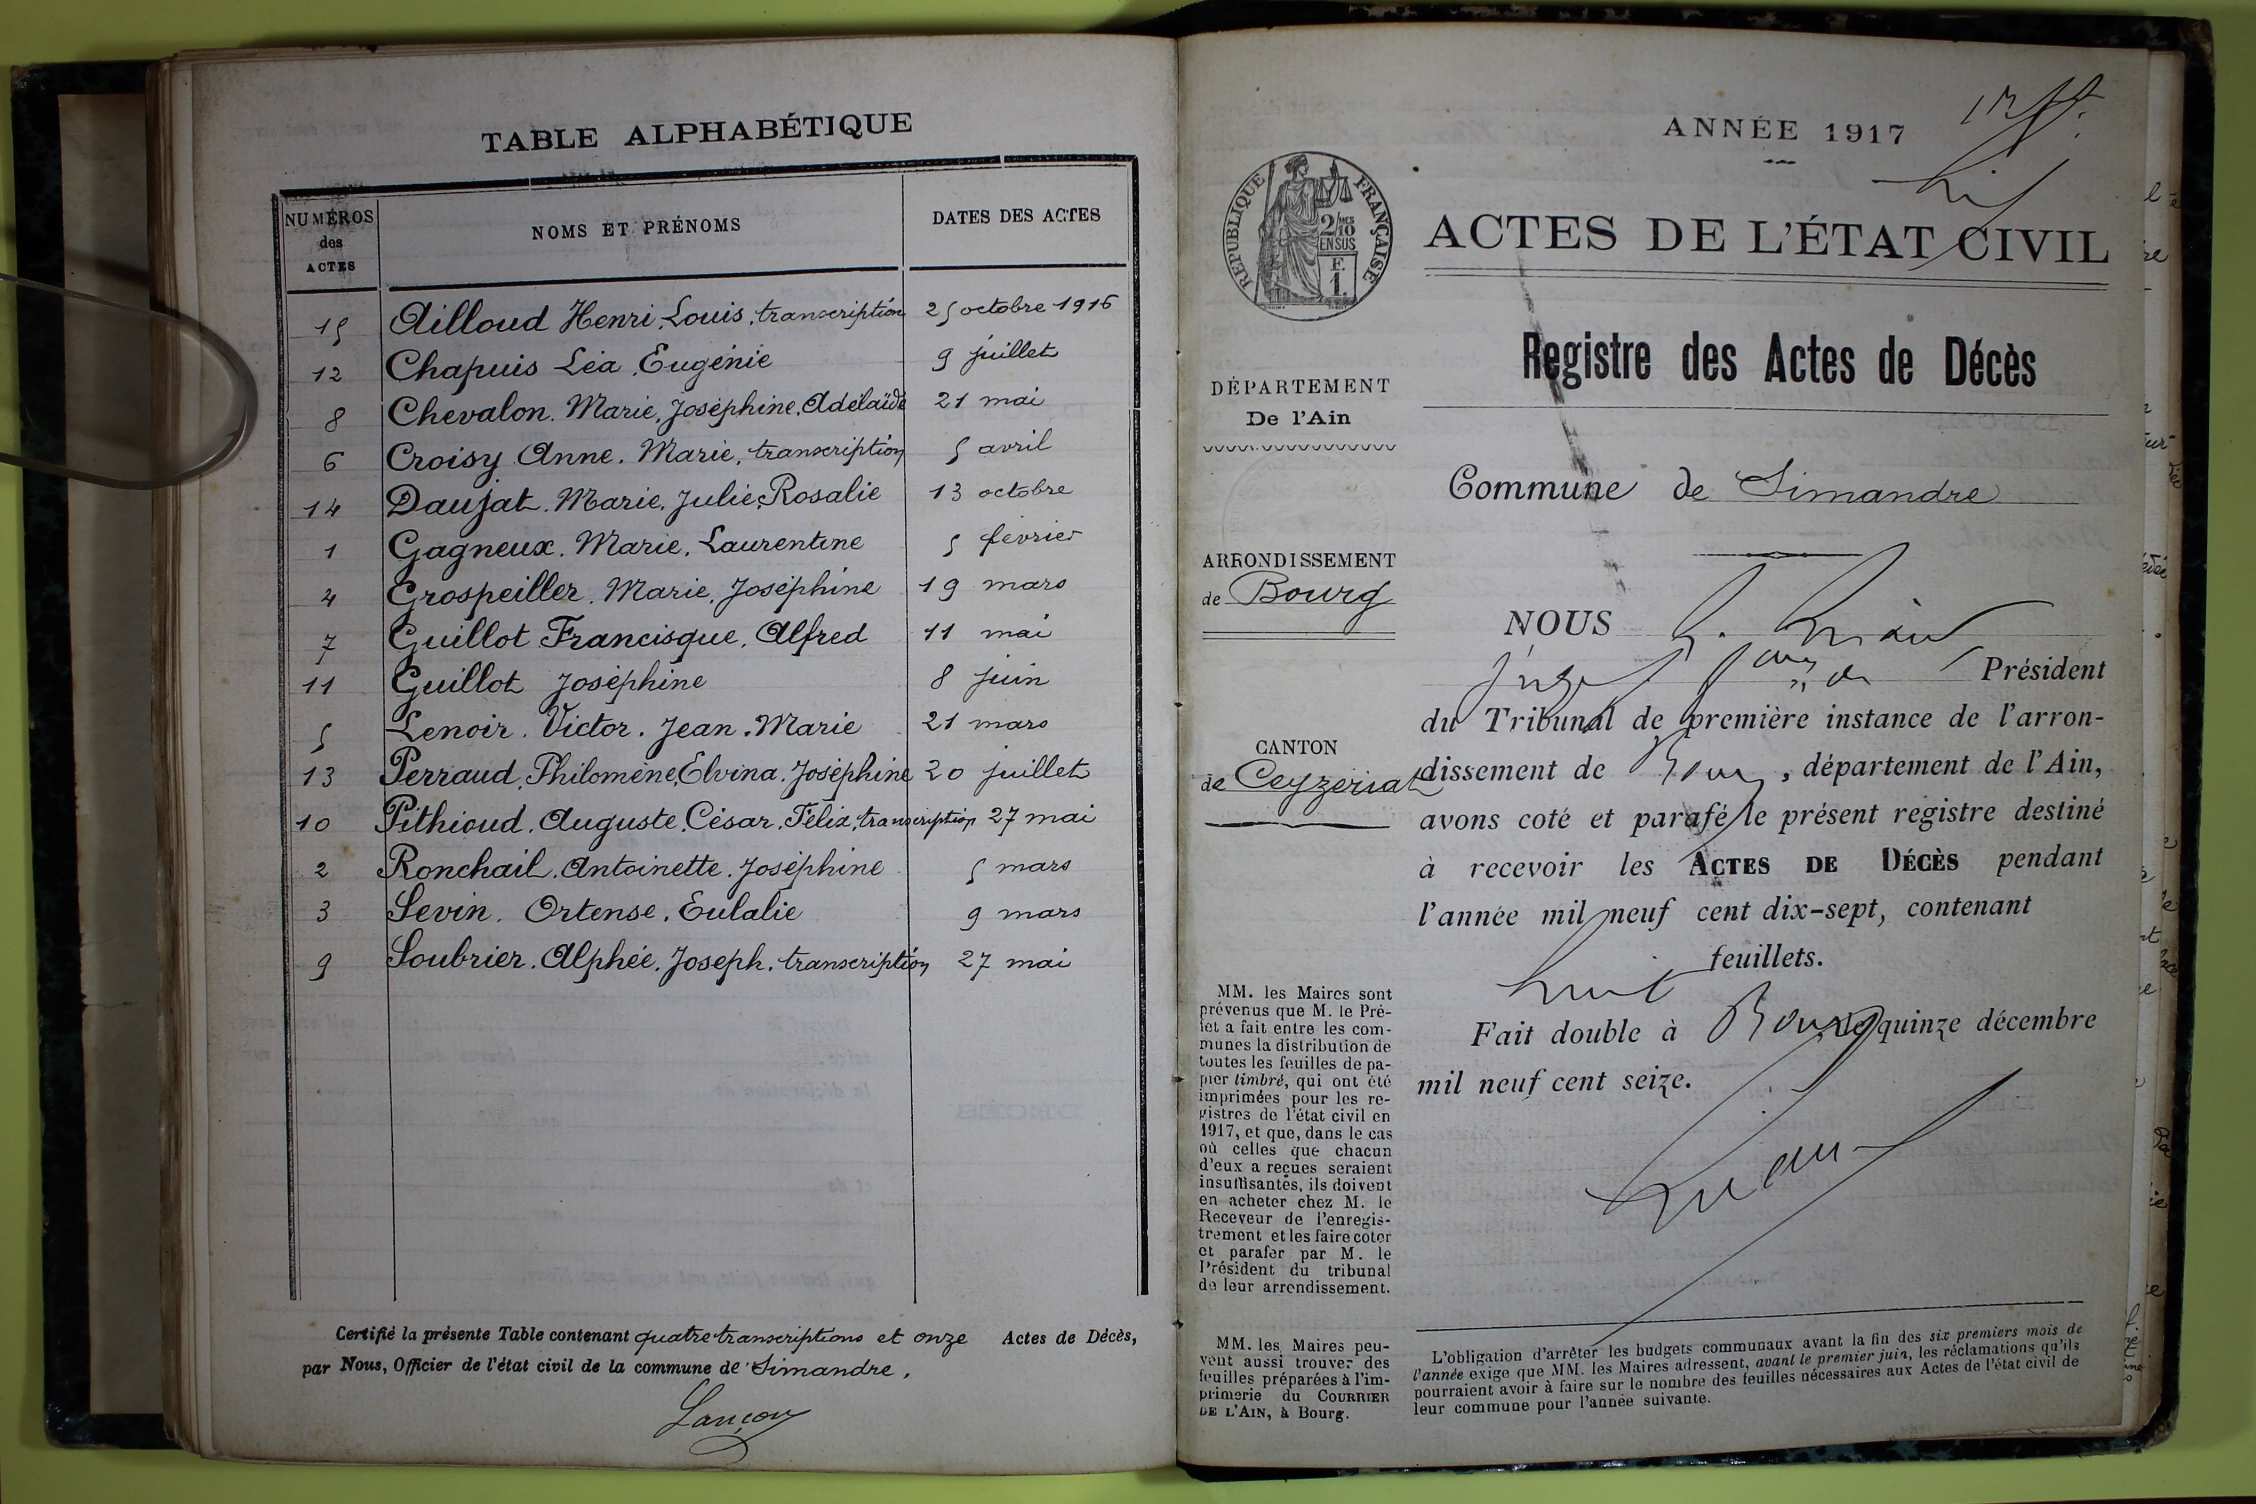 TABLE ALPHABÉTIQUE
NUMÉROS des ACTES NOMS ET PRÉNOMS DATES DES ACTES
15 Ailloud Henri, Louis, transcription 25 octobre 1916
12 Chapuis Léa, Eugénie 9 juillet
8 Chevalon. Marie, Joséphine, Adélaïde 21 mai
6 Croisy Anne. Marie, transcription 5 avril
14 Daujat. Marie, Julie, Rosalie 13 octobre
1 Gagneux. Marie, Laurentine 5 février
4 Grospeiller. Marie, Joséphine 19 mars
7 Guillot Francisque, Alfred 11 mai
11 Guillot Joséphine 8 juin
5 Lenoir. Victor. Jean. Marie 21 mars
13 Perraud, Philomène, Elvina, Joséphine 20 juillet
10 Pithioud. Auguste, César, Félix, transcription 27 mai
2 Ronchail. Antoinette. Joséphine 5 mars
3 Sevin. Ortense, Eulalie 9 mars
9 Soubrier. Alphée, Joseph. transcription 27 mai
Certifié la présente Table contenant quatre transcriptions et onze Actes de Décès,
par Nous, Officier de l'état civil de la commune de Simandre.
Lançon
ANNÉE 1917
RÉPUBLIQUE FRANÇAISE
2/10 EN SUS
F. 1.
ACTES DE L'ÉTAT CIVIL
Registre des Actes de Décès
DÉPARTEMENT
De l'Ain
Commune de Simandre
ARRONDISSEMENT
de Bourg
CANTON
de Ceyzériat
NOUS
Juge Président
du Tribunal de première instance de l'arron-
dissement de Bourg, département de l'Ain,
avons coté et parafé le présent registre destiné
à recevoir les ACTES DE DÉCÈS pendant
l'année mil neuf cent dix-sept, contenant
huit feuillets.
Fait double à Bourg le quinze décembre
mil neuf cent seize.
MM. les Maires sont
prévenus que M. le Pré-
fet a fait entre les com-
munes la distribution de
toutes les feuilles de pa-
pier timbré, qui ont été
imprimées pour les re-
gistres de l'état civil en
1917, et que, dans le cas
où celles que chacun
d'eux a reçues seraient
insuffisantes, ils doivent
en acheter chez M. le
Receveur de l'enregis-
trement et les faire coter
et parafer par M. le
Président du tribunal
de leur arrondissement.
MM. les Maires peu-
vent aussi trouver des
feuilles préparées à l'im-
primerie du COURRIER
DE L'AIN, à Bourg.
L'obligation d'arrêter les budgets communaux avant la fin des six premiers mois de
l'année exige que MM. les Maires adressent, avant le premier juin, les réclamations qu'ils
pourraient avoir à faire sur le nombre des feuilles nécessaires aux Actes de l'état civil de
leur commune pour l'année suivante.